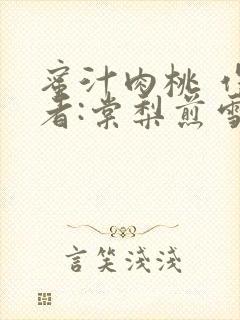 蜜汁肉桃 作
者:棠梨煎雪
言笑淺淺